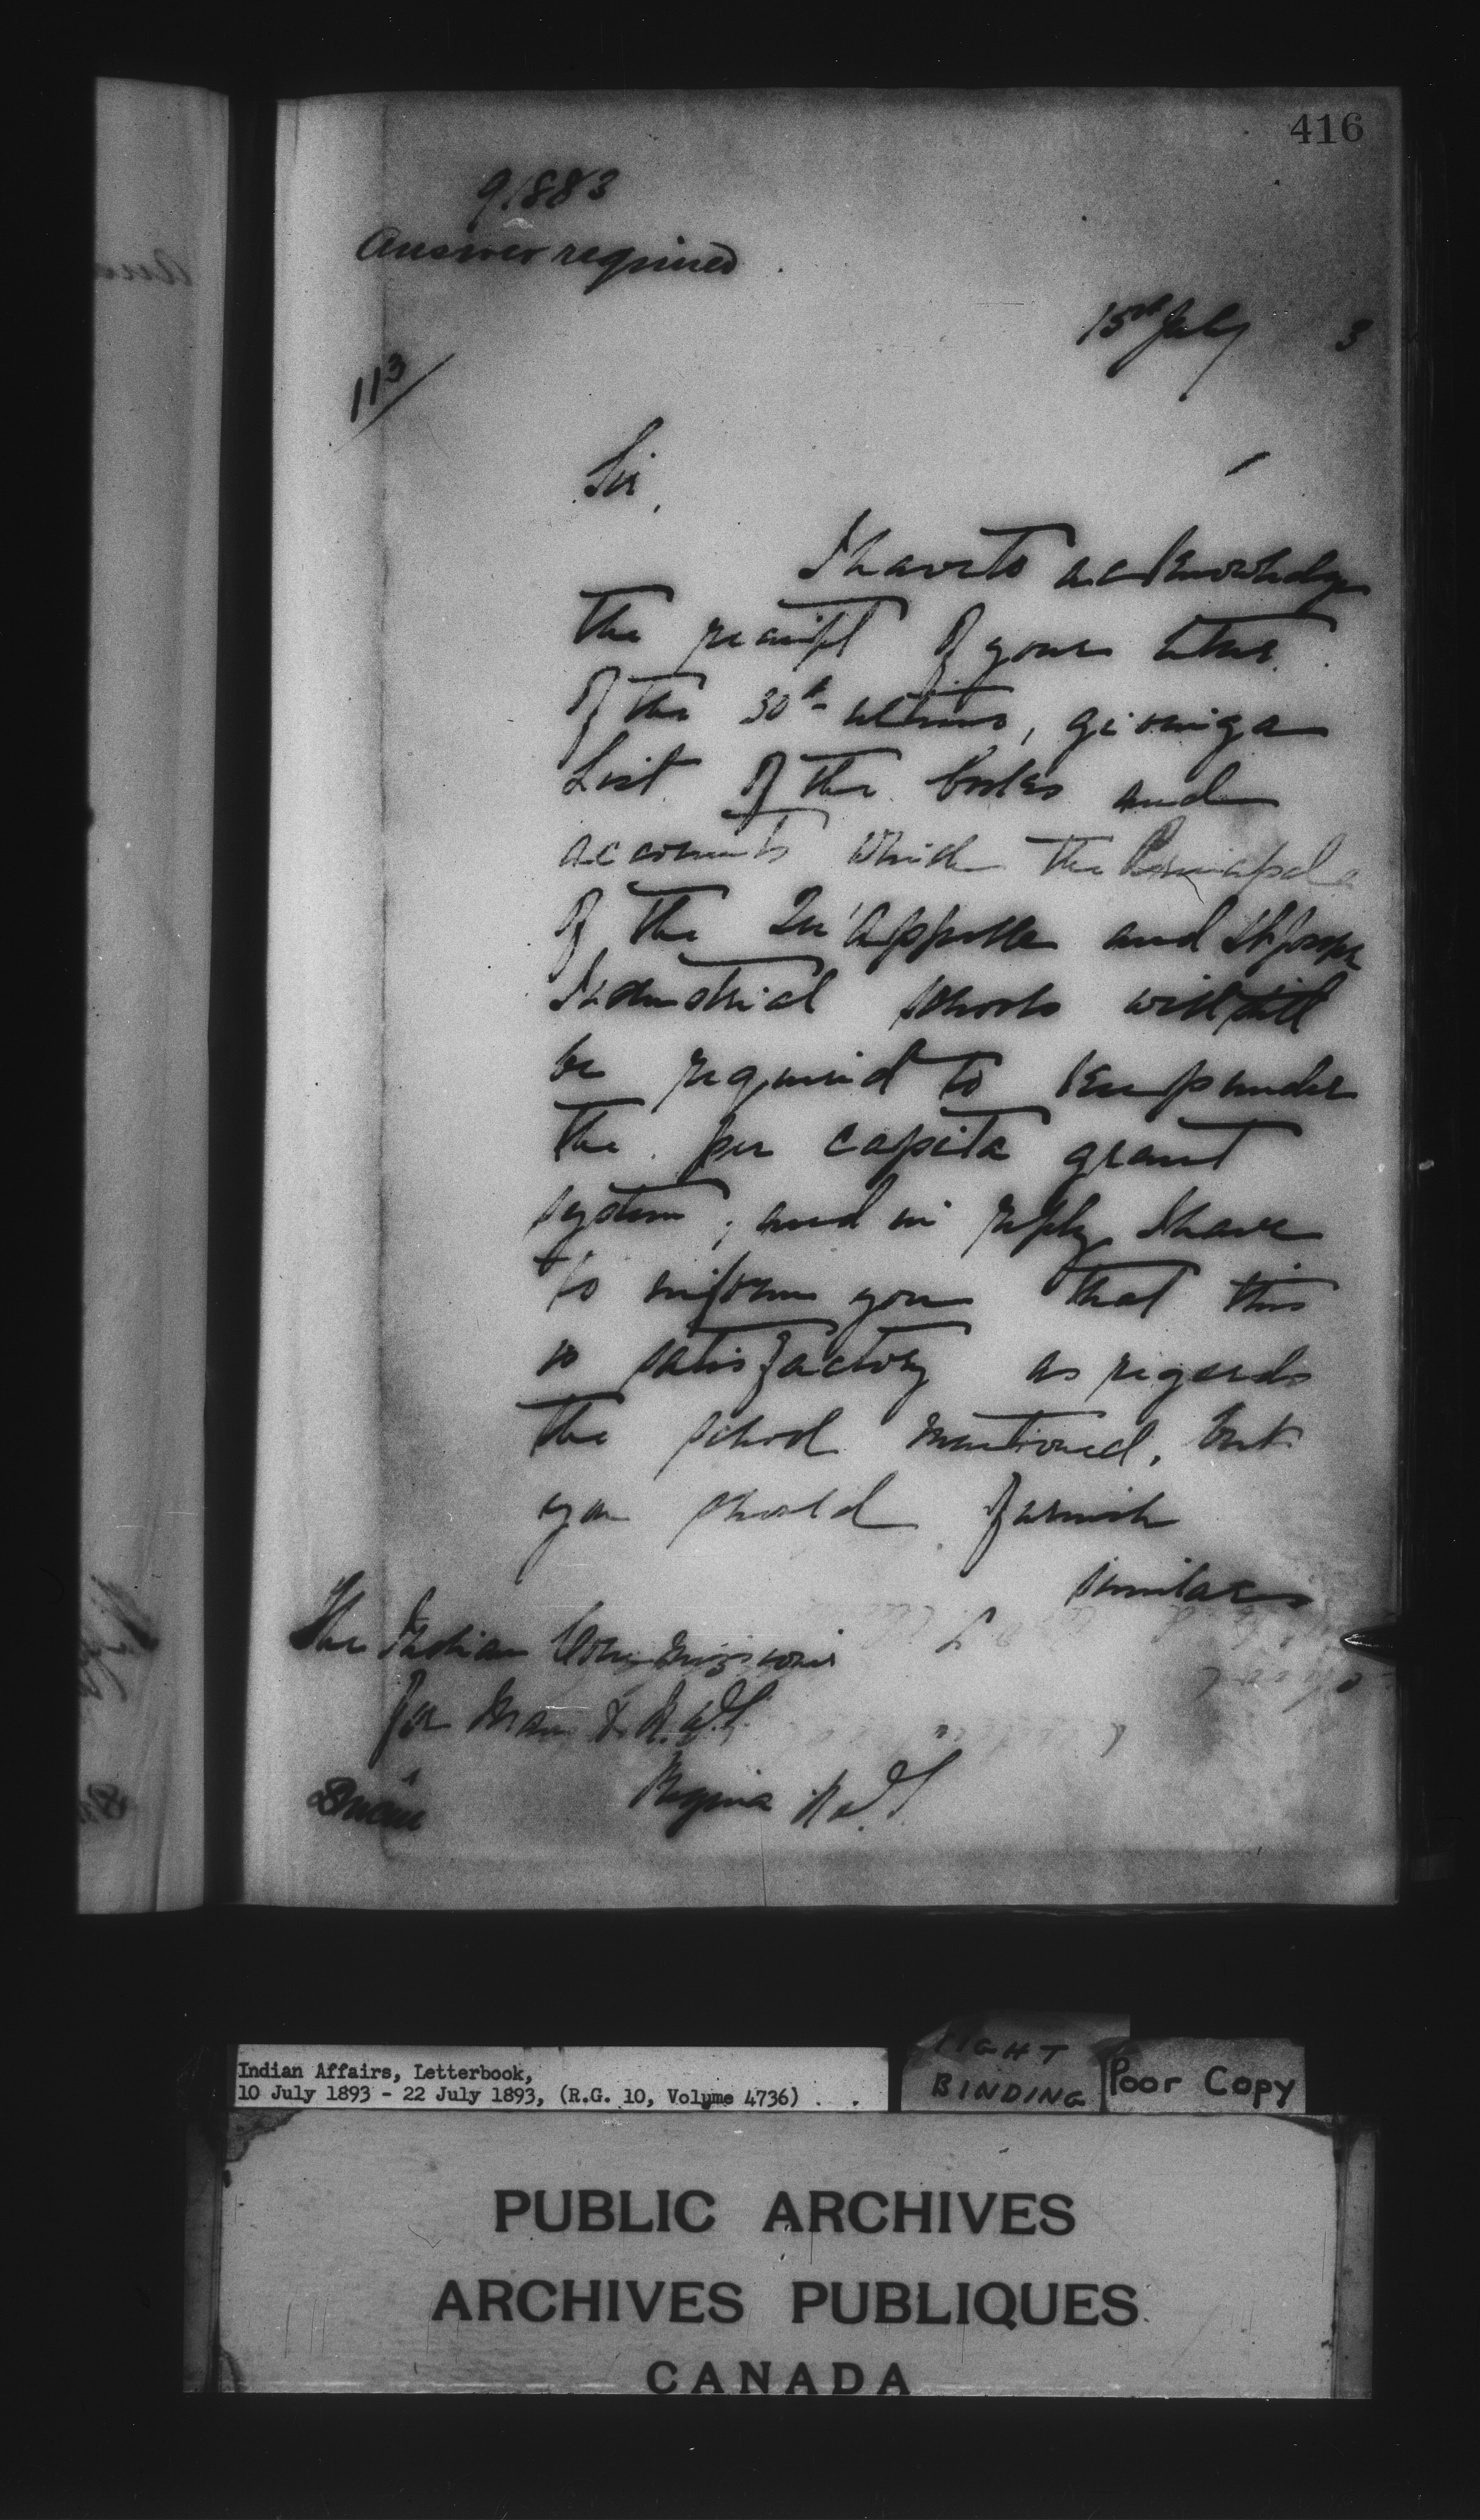 416
91883
Answer required
15th July 3
113/
Sir,
I have to acknowledge
the receipt of your letter
of the 30th ultimo, giving a
List of the books and
accounts which the Principals
of the Qu'Appelle and St Joseph
Industrial schools will still
be required to keep under
the per capita grant
system, and in reply I have
to inform you that this
is satisfactory as regards
the school mentioned, but
you should furnish
similar
The Indian Commissioner
for Man & N.W.T.
Regina N.W.T.
Indian Affairs, Letterbook,
10 July 1893 - 22 July 1893, (R.G. 10, Volume 4736)
TIGHT
BINDING
Poor Copy
PUBLIC ARCHIVES
ARCHIVES PUBLIQUES
CANADA